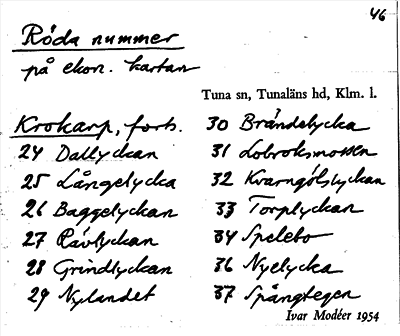 46
Röda nummer
på ekon. kartan
Tuna sn, Tunaläns hd, Klm. l.
Krokarp, forts.
24 Dallyckan
25 Långelycka
26 Baggelyckan
27 Rävlyckan
28 Grindlyckan
29 Nylandet
30 Brändelycka
31 Lobroksmossen
32 Kvarngölslyckan
33 Torplyckan
34 Spelebo
36 Nyelycka
37 Spångtegen
Ivar Modéer 1954